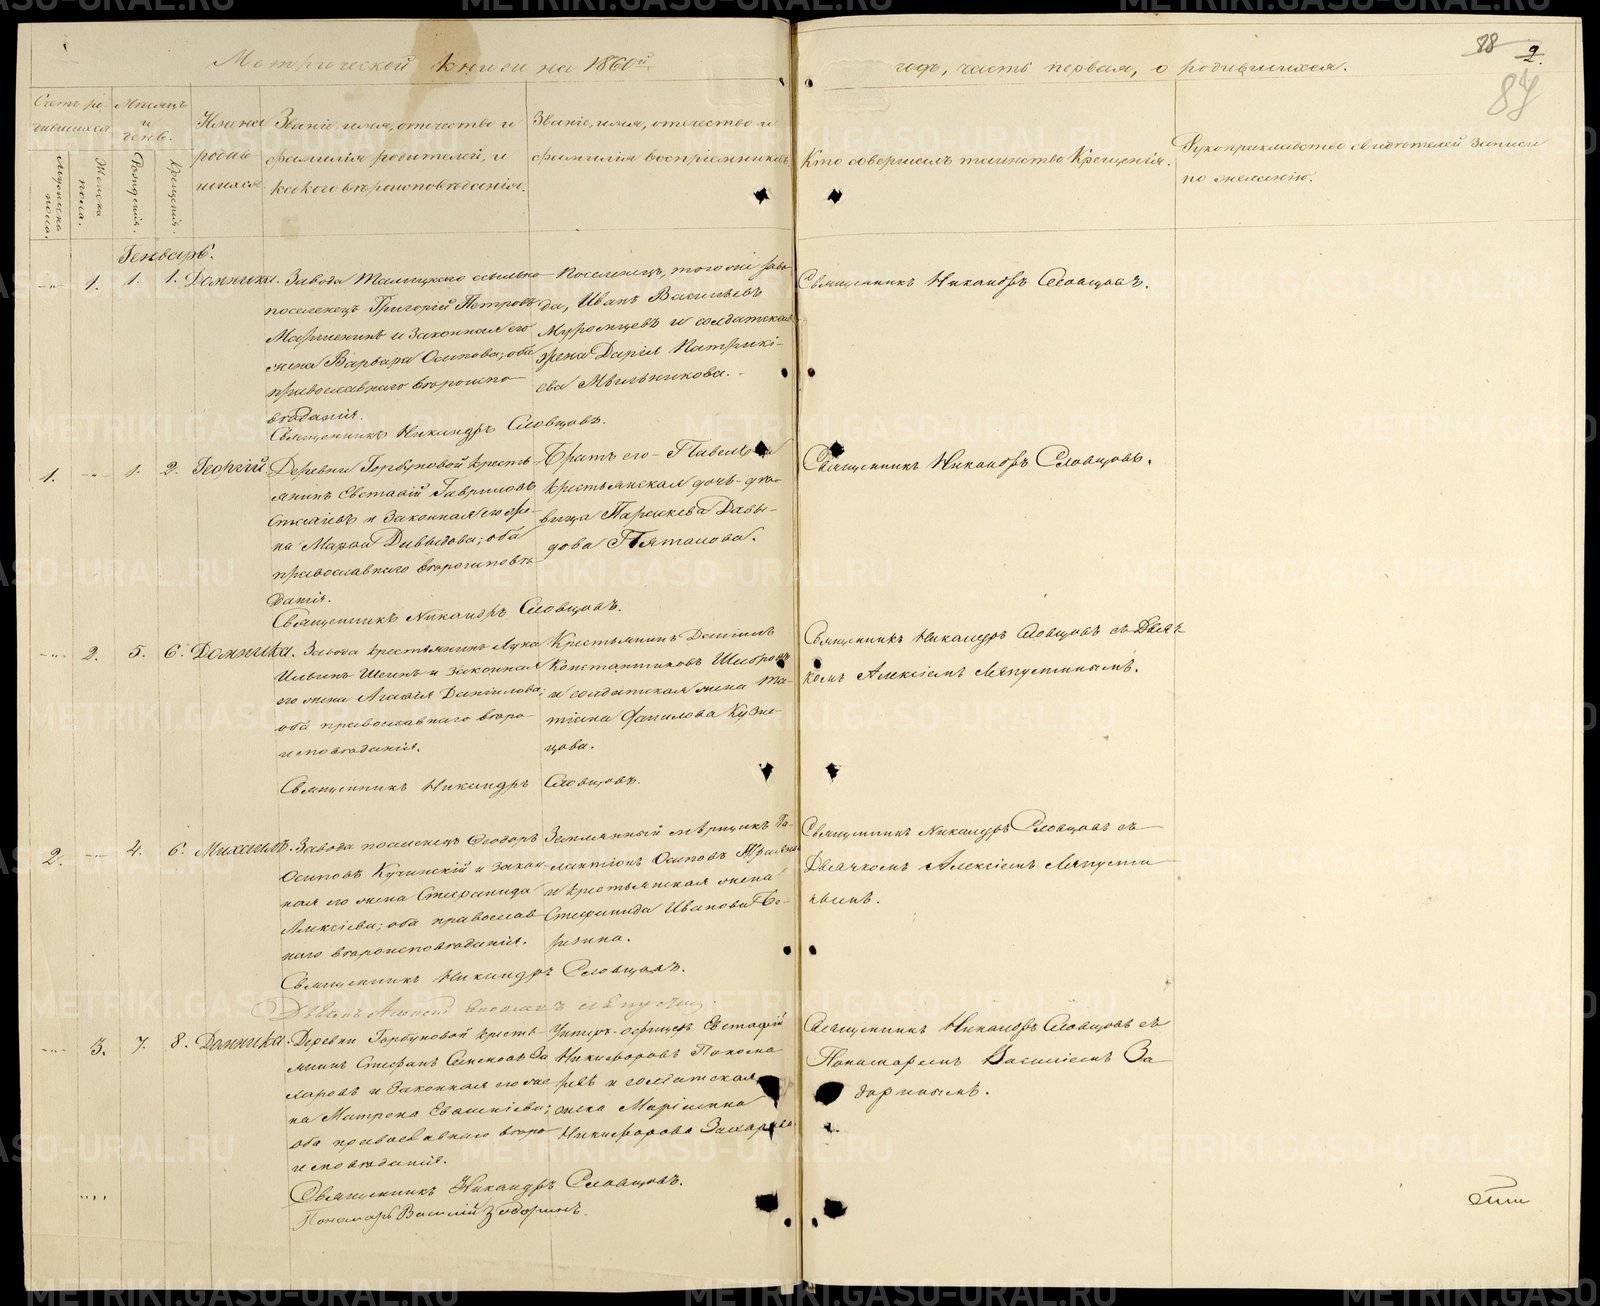 Метрической книги на 1860й
годъ, часть первая, о родившихся.
88 9
87
Счетъ ро-
дившихся.
Мужеска
пола.
Женска
пола.
Мѣсяцъ
и
день.
Рожденія.
Крещенія.
Имена
родив-
шихся.
Званіе, имя, отчество и
фамилія родителей, и
какого вѣроисповѣданія.
Званіе, имя, отчество и
фамилія воспріемниковъ.
Кто совершалъ таинство Крещенія.
Рукоприкладство свидѣтелей записи
по желанію.
Генварь.
1. 1. 1. Домника.
Завода Талицкаго ссыльно-
поселенецъ Григорій Петровъ
и законная его
жена Варвара Осипова; оба
православнаго вѣроиспо-
вѣданія.
Священникъ Никандръ Словцовъ.
Поселенецъ, того же заво-
да, Иванъ Васильевъ
Муромцевъ и солдатская
жена Дарія Патрикі-
ева Мѣльникова.
Священникъ Никандръ Словцовъ.
1. 1. 2. Георгій.
Деревни Горбуновой кресть-
янинъ Евстафій Гавриловъ
и законная его же-
на Марѳа Давыдова; оба
православнаго вѣроисповѣ-
данія.
Священникъ Никандръ Словцовъ.
Братъ его Павелъ и
крестьянская дочь-дѣ-
вица Параскева Давы-
дова Пяткова.
Священникъ Никандръ Словцовъ.
2. 5. 6. Домника.
Завода крестьянинъ Лука
Ильинъ и законная
его жена Агафія Даніилова;
оба православнаго вѣро-
исповѣданія.
Священникъ Никандръ Словцовъ.
Крестьянинъ Даніилъ
Константиновъ
и солдатская жена Та-
тіана Кузне-
цова.
Священникъ Никандръ Словцовъ съ Дьяч-
комъ Алексіемъ Ляпустинымъ.
2. 4. 6. Михаилъ.
Завода поселенецъ Ѳеодоръ
Осиповъ Кучинскій и закон-
ная его жена Стефанида
Алексіева; оба православ-
наго вѣроисповѣданія.
Священникъ Никандръ Словцовъ.
Землянный мѣрщикъ Га-
лактіонъ Осиповъ
и крестьянская жена
Стефанида Иванова Бе-
резина.
Священникъ Никандръ Словцовъ съ
Дьячкомъ Алексіемъ Ляпусти-
нымъ.
3. 7. 8. Домника.
Деревни Горбуновой кресть-
янинъ Стефанъ Семеновъ За-
харовъ и законная его же-
на Матрона Евсигніева;
оба православнаго вѣро-
исповѣданія.
Священникъ Никандръ Словцовъ.
Пономарь Василій Задоринъ.
Унтеръ-офицеръ Евстафій
Никифоровъ
и солдатская
жена Маріамна
Никифорова Захарова
Священникъ Никандръ Словцовъ съ
Пономаремъ Василіемъ За-
доринымъ.
METRIKI.GASO-URAL.RU